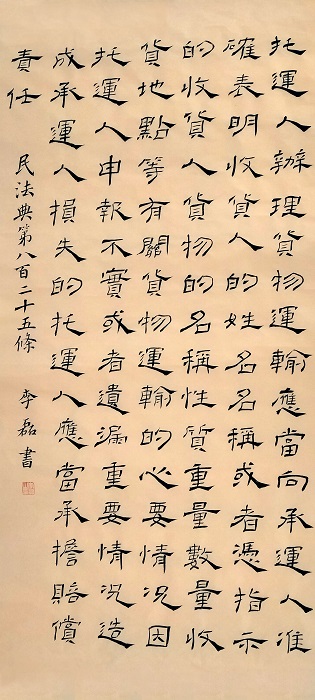 托運人辦理貨物運輸應當向承運人准
確表明收貨人的姓名名稱或者憑指示
的收貨人貨物的名稱性質重量數量收
貨地點等有關貨物運輸的必要情況因
托運人申報不實或者遺漏重要情況造
成承運人損失的托運人應當承擔賠償
責任
民法典第八百二十五條 李磊書